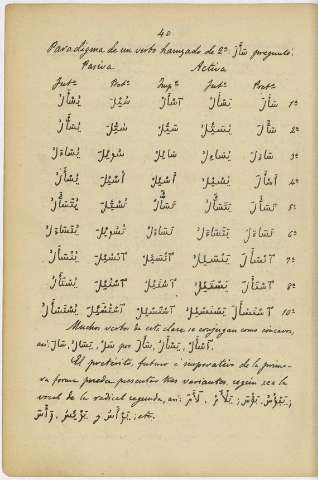 40
Paradigma de un verbo hamzado de 2ª سَأَلَ preguntó.
Pasiva Activa
Futº Pretº Impº Futº Pretº
يُسْأَلُ سُئِلَ اسْأَلْ يَسْأَلُ سَأَلَ 1ª
يُسَأَّلُ سُئِّلَ سَئِّلْ يُسَئِّلُ سَأَّلَ 2ª
يُسَاءَلُ سُوئِلَ سَائِلْ يُسَائِلُ سَاءَلَ 3ª
يُسْأَلُ أُسْئِلَ أَسْئِلْ يُسْئِلُ أَسْأَلَ 4ª
يُتَسَأَّلُ تُسُئِّلَ تَسَأَّلْ يَتَسَأَّلُ تَسَأَّلَ 5ª
يُتَسَاءَلُ تُسُوئِلَ تَسَاءَلْ يَتَسَاءَلُ تَسَاءَلَ 6ª
يُنْسَأَلُ اُنْسُئِلَ اِنْسَئِلْ يَنْسَئِلُ اِنْسَأَلَ 7ª
يُسْتَأَلُ اُسْتُئِلَ اِسْتَئِلْ يَسْتَئِلُ اِسْتَأَلَ 8ª
يُسْتَسْأَلُ اُسْتُسْئِلَ اِسْتَسْئِلْ يَسْتَسْئِلُ اِسْتَسْأَلَ 10ª
Muchos verbos de esta clase se conjugan como cóncavos,
así: سَالَ, يَسَالُ, سَلْ por سَأَلَ, يَسْأَلُ, اسْأَلْ.
El pretérito, futuro é imperativo de la prime-
ra forma pueden presentar tres variantes, según sea la
vocal de la radical segunda, así: لَأَمَ, يَلْأَمُ; بَؤُسَ, يَبْؤُسُ;
رَأَسَ, يَرْأَسُ y يَرْئِسُ; etc.